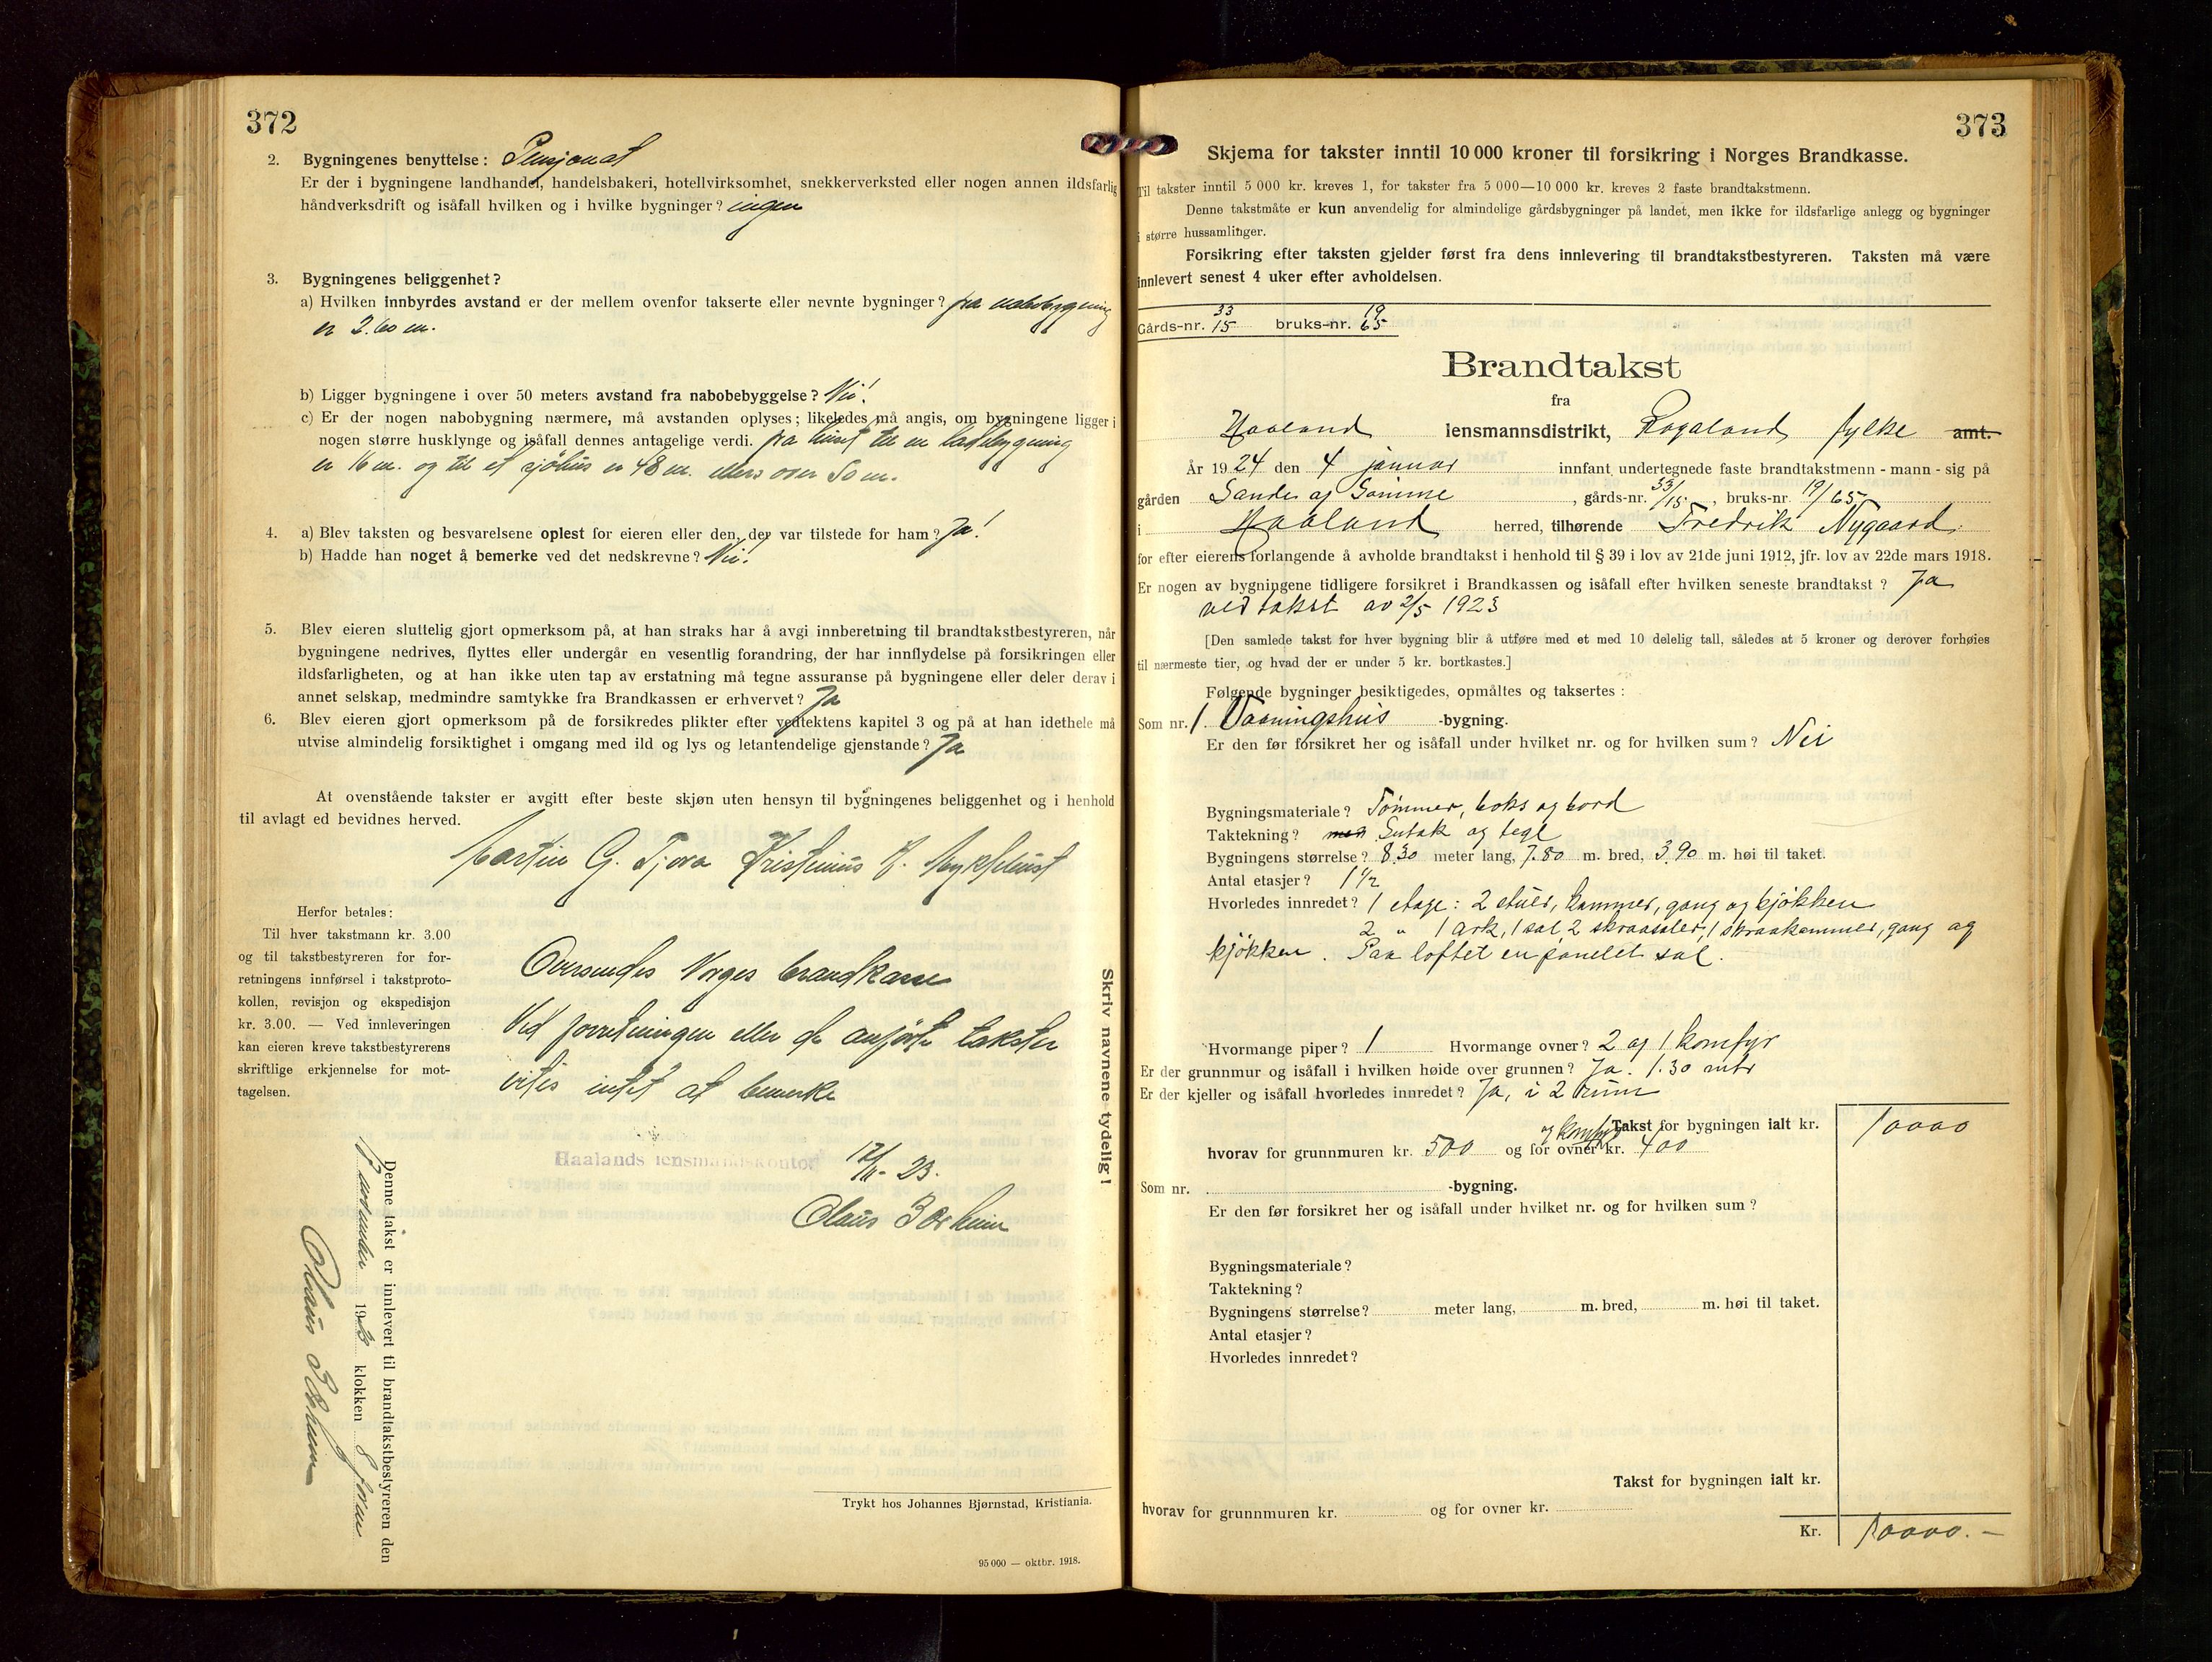 372
2. Bygningenes benyttelse: Pensjonat
Er der i bygningene landhandel, handelsbakeri, hotellvirksomhet, snekkerverksted eller nogen annen ildsfarlig
håndverksdrift og isåfall hvilken og i hvilke bygninger? ingen
3. Bygningenes beliggenhet?
a) Hvilken innbyrdes avstand er der mellem ovenfor takserte eller nevnte bygninger? fra nabobygning
er 2.60 m.
b) Ligger bygningene i over 50 meters avstand fra nabobebyggelse? Nei!
c) Er der nogen nabobygning nærmere, må avstanden oplyses; likeledes må angis, om bygningene ligger i
nogen større husklynge og isåfall dennes antagelige verdi. fra huset til en ladebygning
er 16 m. og til et sjöhus er 48 m. ellers over 50 m.
4. a) Blev taksten og besvarelsene oplest for eieren eller den, der var tilstede for ham? Ja!
b) Hadde han noget å bemerke ved det nedskrevne? Nei!
5. Blev eieren sluttelig gjort opmerksom på, at han straks har å avgi innberetning til brandtakstbestyreren, når
bygningene nedrives, flyttes eller undergår en vesentlig forandring, der har innflydelse på forsikringen eller
ildsfarligheten, og at han ikke uten tap av erstatning må tegne assuranse på bygningene eller deler derav i
annet selskap, medmindre samtykke fra Brandkassen er erhvervet? Ja
6. Blev eieren gjort opmerksom på de forsikredes plikter efter vedtektens kapitel 3 og på at han idethele må
utvise almindelig forsiktighet i omgang med ild og lys og letantendelige gjenstande? Ja
At ovenstående takster er avgitt efter beste skjøn uten hensyn til bygningenes beliggenhet og i henhold
til avlagt ed bevidnes herved.
Martin G. Tjora Kristinius K. Mykletust
Herfor betales:
Til hver takstmann kr. 3.00
og til takstbestyreren for for-
retningens innførsel i takstproto-
kollen, revisjon og ekspedisjon
kr. 3.00. — Ved innleveringen
kan eieren kreve takstbestyrerens
skriftlige erkjennelse for mot-
tagelsen.
Oversendes Norges brandkasse
Ved forretningen eller de anförte takster
vites intet at bemerke
Haalands lensmandskontor 12/11- 23.
Olaus Borheim
Skriv navnene tydelig!
Denne takst er innlevert til brandtakstbestyreren den
november 1923 klokken 8 form
Olaus Borheim
Trykt hos Johannes Bjørnstad, Kristiania.
95 000 — oktbr. 1918.
373
Skjema for takster inntil 10 000 kroner til forsikring i Norges Brandkasse.
Til takster inntil 5 000 kr. kreves 1, for takster fra 5 000—10 000 kr. kreves 2 faste brandtakstmenn.
Denne takstmåte er kun anvendelig for almindelige gårdsbygninger på landet, men ikke for ildsfarlige anlegg og bygninger
i større hussamlinger.
Forsikring efter taksten gjelder først fra dens innlevering til brandtakstbestyreren. Taksten må være
innlevert senest 4 uker efter avholdelsen.
Gårds-nr. 33/15 bruks-nr. 19/65
Brandtakst
fra
Haaland lensmannsdistrikt, Rogaland fylke amt.
År 1924 den 4 januar innfant undertegnede faste brandtakstmenn - mann - sig på
gården Sande og Sömme, gårds-nr. 33/15, bruks-nr 19/65
i Haaland herred, tilhørende Fredrik Nygaard
for efter eierens forlangende å avholde brandtakst i henhold til § 39 i lov av 21de juni 1912, jfr. lov av 22de mars 1918.
Er nogen av bygningene tidligere forsikret i Brandkassen og isåfall efter hvilken seneste brandtakst? Ja
ved takst av 2/5 1923
[Den samlede takst for hver bygning blir å utføre med et med 10 delelig tall, således at 5 kroner og derover forhøies
til nærmeste tier, og hvad der er under 5 kr. bortkastes.]
Følgende bygninger besiktigedes, opmåltes og taksertes:
Som nr. 1. Vaaningshus -bygning.
Er den før forsikret her og isåfall under hvilket nr. og for hvilken sum? Nei
Bygningsmateriale? Tömmer, boks og bord
Taktekning? med Sutak og tegl
Bygningens størrelse? 8.30 meter lang, 7.80 m. bred, 3.90 m. høi til taket.
Antal etasjer? 1 1/2
Hvorledes innredet? 1 etage: 2 stuer, kammer, gang og kjökken
2 " 1 ark, 1 sal 2 skraasaler, 1 skraakammer, gang og
kjökken. Paa loftet en panelet sal.
Hvormange piper? 1 Hvormange ovner? 2 og 1 komfyr
Er der grunnmur og isåfall i hvilken høide over grunnen? Ja. 1.30 mtr
Er der kjeller og isåfall hvorledes innredet? Ja, i 2 rum
Takst for bygningen ialt kr. 10000
hvorav for grunnmuren kr. 500 og for ovner og komfyr kr. 400
Som nr. -bygning.
Er den før forsikret her og isåfall under hvilket nr. og for hvilken sum?
Bygningsmateriale?
Taktekning?
Bygningens størrelse? meter lang, m. bred, m. høi til taket.
Antal etasjer?
Hvorledes innredet?
Takst for bygningen ialt kr.
hvorav for grunnmuren kr. og for ovner kr.
Kr. 10000.-